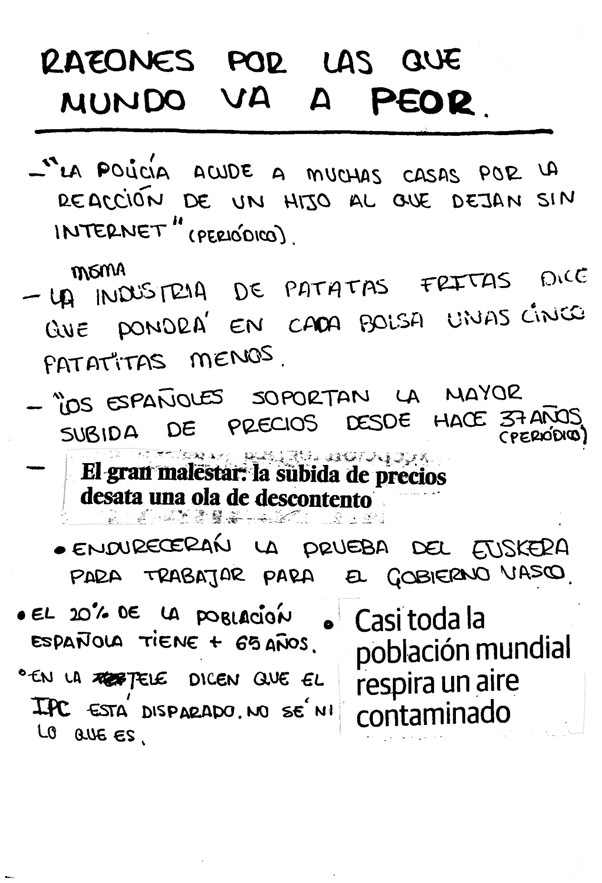 RAZONES POR LAS QUE
MUNDO VA A PEOR.
- "LA POLICÍA ACUDE A MUCHAS CASAS POR LA
REACCIÓN DE UN HIJO AL QUE DEJAN SIN
INTERNET" (PERIÓDICO).
misma
- LA INDUSTRIA DE PATATAS FRITAS DICE
QUE PONDRÁ EN CADA BOLSA UNAS CINCO
PATATITAS MENOS.
- "LOS ESPAÑOLES SOPORTAN LA MAYOR
SUBIDA DE PRECIOS DESDE HACE 37 AÑOS
(PERIÓDICO)
- El gran malestar: la subida de precios
desata una ola de descontento
• ENDURECERÁN LA PRUEBA DEL EUSKERA
PARA TRABAJAR PARA EL GOBIERNO VASCO.
• EL 20% DE LA POBLACIÓN
ESPAÑOLA TIENE + 65 AÑOS.
• EN LA TELE DICEN QUE EL
IPC ESTÁ DISPARADO. NO SÉ NI
LO QUE ES.
• Casi toda la
población mundial
respira un aire
contaminado